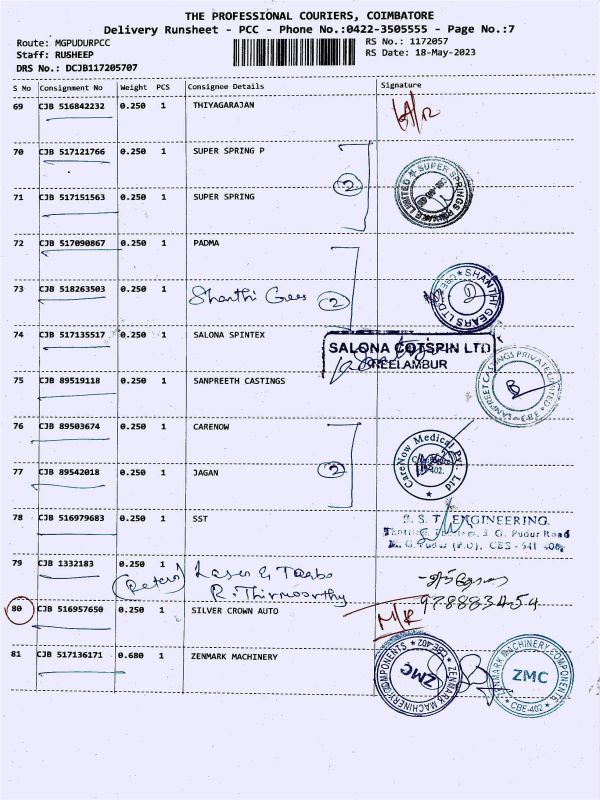 THE PROFESSIONAL COURIERS, COIMBATORE
Delivery Runsheet - PCC - Phone No.:0422-3505555 - Page No.:7
Route: MGPUDURPCC
RS No.: 1172057
Staff: RUSHEEP
RS Date: 18-May-2023
DRS No.: DCJB117205707
S No Consignment No Weight PCS Consignee Details Signature
69 CJB 516842232 0.250 1 THIYAGARAJAN
70 CJB 517121766 0.250 1 SUPER SPRING P
2
SUPER SPRINGS PRIVATE LIMITED
71 CJB 517151563 0.250 1 SUPER SPRING
72 CJB 517090867 0.250 1 PADMA
73 CJB 518263503 0.250 1 Shanthi Gears 2
SHANTHI GEARS LTD.
74 CJB 517135517 0.250 1 SALONA SPINTEX
SALONA COTSPIN LTD
NEELAMBUR
75 CJB 89519118 0.250 1 SANPREETH CASTINGS
CASTINGS PRIVATE LIMITED
76 CJB 89503674 0.250 1 CARENOW
2
CareNow Medical Pvt. Ltd
77 CJB 89542018 0.250 1 JAGAN
78 CJB 516979683 0.250 1 SST
S. S. T. ENGINEERING.
3 G. Pudur Road
79 CJB 1332183 0.250 1 Laser &
R. Thirmoorthy
80 CJB 516957650 0.250 1 SILVER CROWN AUTO
81 CJB 517136171 0.680 1 ZENMARK MACHINERY
ZENMARK MACHINERY COMPONENTS
CBE-402
ZMC
ZENMARK MACHINERY COMPONENTS
ZMC
CBE-402